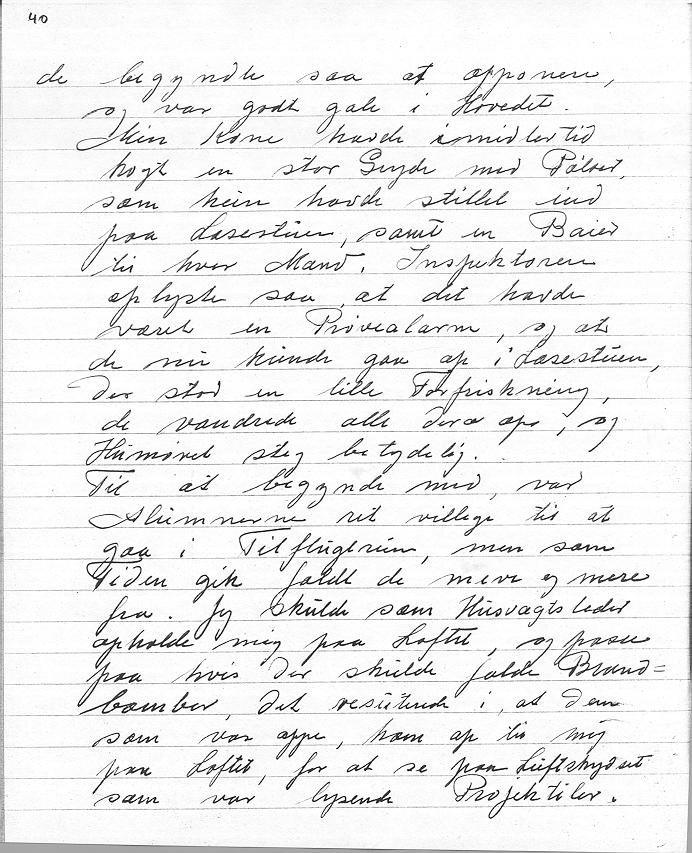 40
de begyndte saa at opponere,
og var godt gale i Hovedet.
Min Kone havde imidlertid
kogt en stor Gryde med Pølser,
som hun havde stillet ind
paa Læsestuen, samt en Baier
til hver Mand. Inspektøren
oplyste saa, at det havde
været en Prøvealarm, og at
de nu kunde gaa op i Læsestuen,
der stod en lille Forfriskning,
de vandrede alle derop, og
Humøret steg betydelig.
Til at begynde med, var
Alumnerne ret villige til at
gaa i Tilflugtsrum, men som
Tiden gik faldt de mere og mere
fra. Jeg skulde som Husvagtsleder
opholde mig paa Loftet, og passe
paa hvis der skulde falde Brand=
bomber, det resulterede i, at dem
som var oppe, kom op til mig
paa Loftet, for at se paa Luftskydset
som var lysende Projektiler.